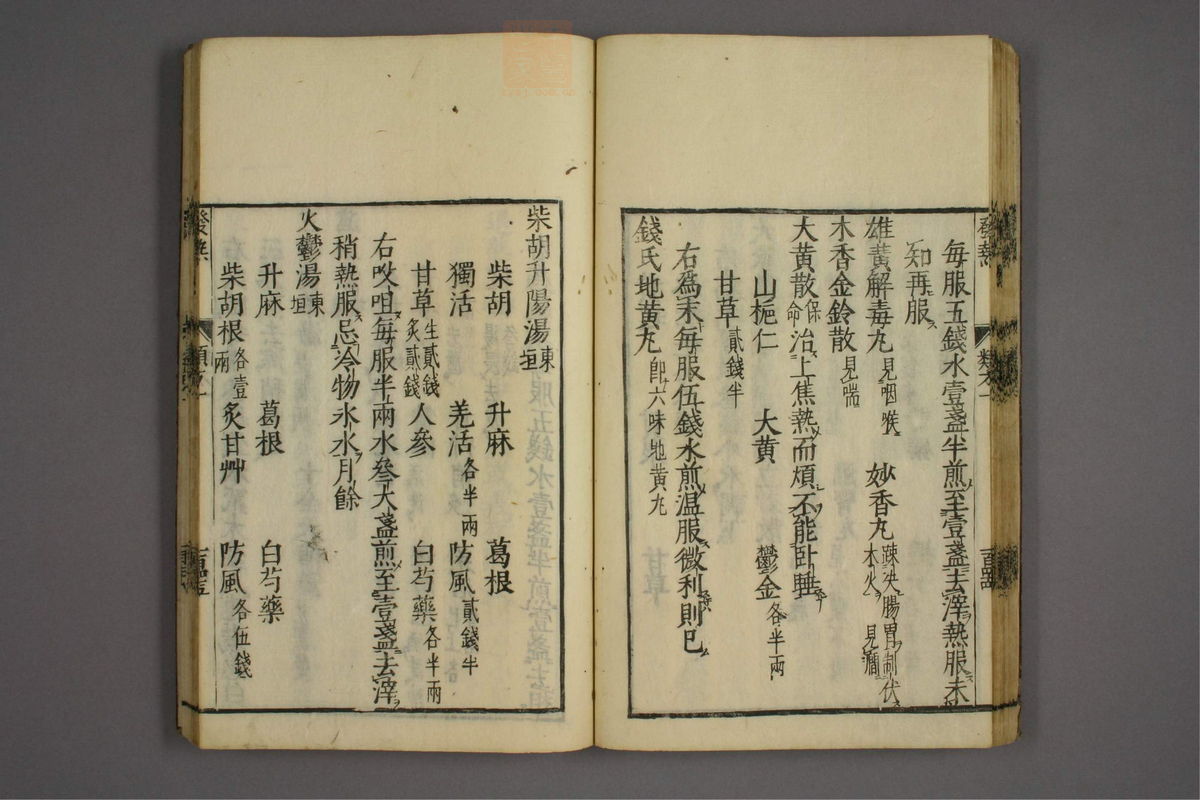 每服五錢水壹盞半煎至壹盞去滓熱服未
知再服
雄黃解毒丸見咽喉 妙香丸疎決腸胃制伏木火見癇
木香金鈴散見喘
大黃散保命治上焦熱而煩不能卧睡
山梔仁 大黃 鬱金各半兩
甘草貳錢半
右爲末每服伍錢水煎温服微利則已
錢氏地黃丸卽六味地黃丸
柴胡升陽湯東垣
柴胡 升麻 葛根
獨活 羌活各半兩 防風貳錢半
甘草生貳錢炙貳錢 人參 白芍藥各半兩
右㕮咀每服半兩水叄大盞煎至壹盞去滓
稍熱服忌冷物氷水月餘
火鬱湯東垣
升麻 葛根 白芍藥
柴胡根各壹兩 炙甘艸 防風各伍錢
發熱